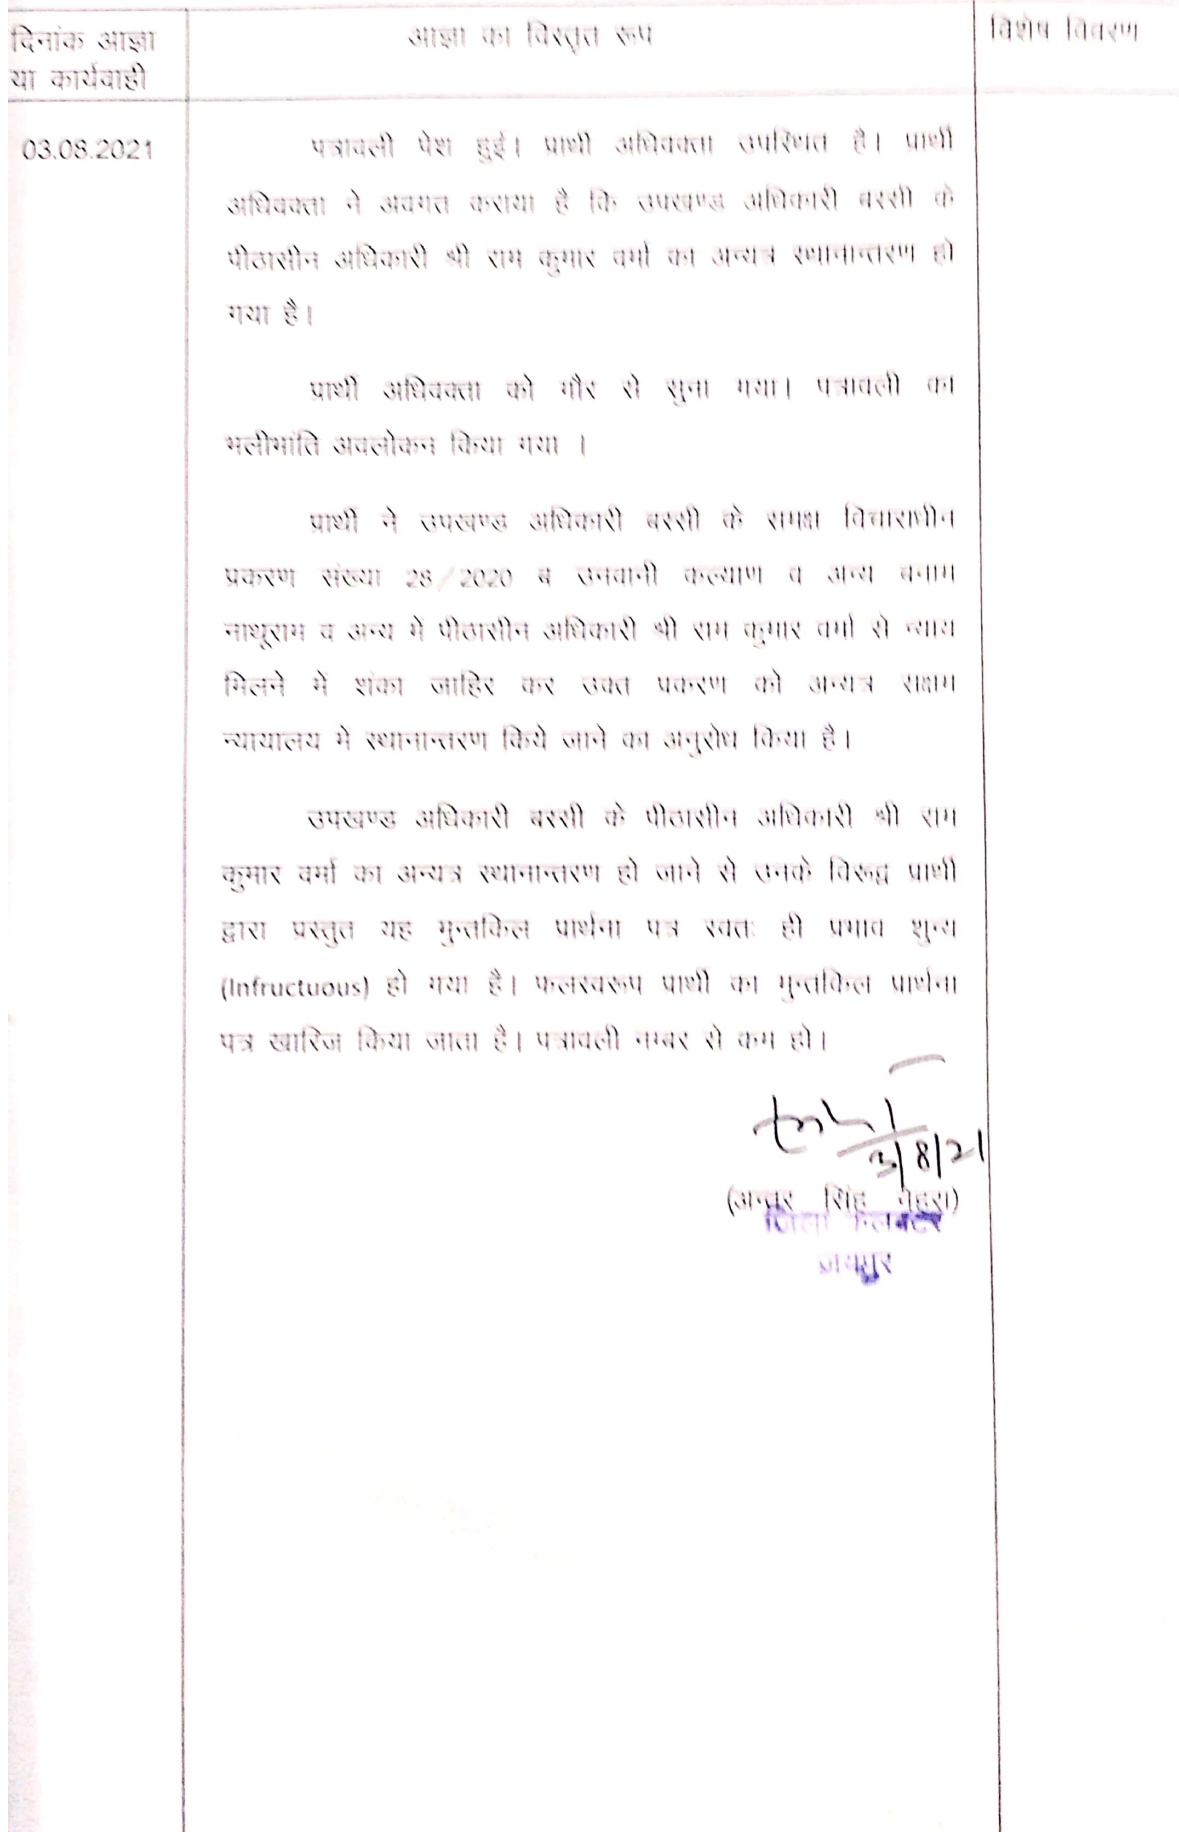 दिनांक आज्ञा
या कार्यवाही
आज्ञा का विस्तृत रूप
विशेष विवरण
03.08.2021
पत्रावली पेश हुई। प्रार्थी अधिवक्ता उपस्थित है। प्रार्थी
अधिवक्ता ने अवगत कराया है कि उपखण्ड अधिकारी बस्सी के
पीठासीन अधिकारी श्री राम कुमार वर्मा का अन्यत्र स्थानान्तरण हो
गया है।
प्रार्थी अधिवक्ता को गौर से सुना गया। पत्रावली का
भलीभांति अवलोकन किया गया ।
प्रार्थी ने उपखण्ड अधिकारी बस्सी के समक्ष विचाराधीन
प्रकरण संख्या 28/2020 ब उनवानी कल्याण व अन्य बनाम
नाथूराम व अन्य में पीठासीन अधिकारी श्री राम कुमार वर्मा से न्याय
मिलने में शंका जाहिर कर उक्त प्रकरण को अन्यत्र सक्षम
न्यायालय मे स्थानान्तरण किये जाने का अनुरोध किया है।
उपखण्ड अधिकारी बस्सी के पीठासीन अधिकारी श्री राम
कुमार वर्मा का अन्यत्र स्थानान्तरण हो जाने से उनके विरूद्ध प्रार्थी
द्वारा प्रस्तुत यह मुन्तकिल प्रार्थना पत्र स्वतः ही प्रभाव शुन्य
(Infructuous) हो गया है। फलस्वरूप प्रार्थी का मुन्तकिल प्रार्थना
पत्र खारिज किया जाता है। पत्रावली नम्बर से कम हो।
3/8/21
(अन्तर सिंह नेहरा)
जिला कलक्टर
जयपुर